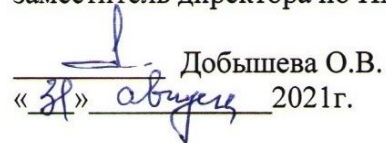 заместитель директора по
Добышева О.В.
«31» август 2021г.